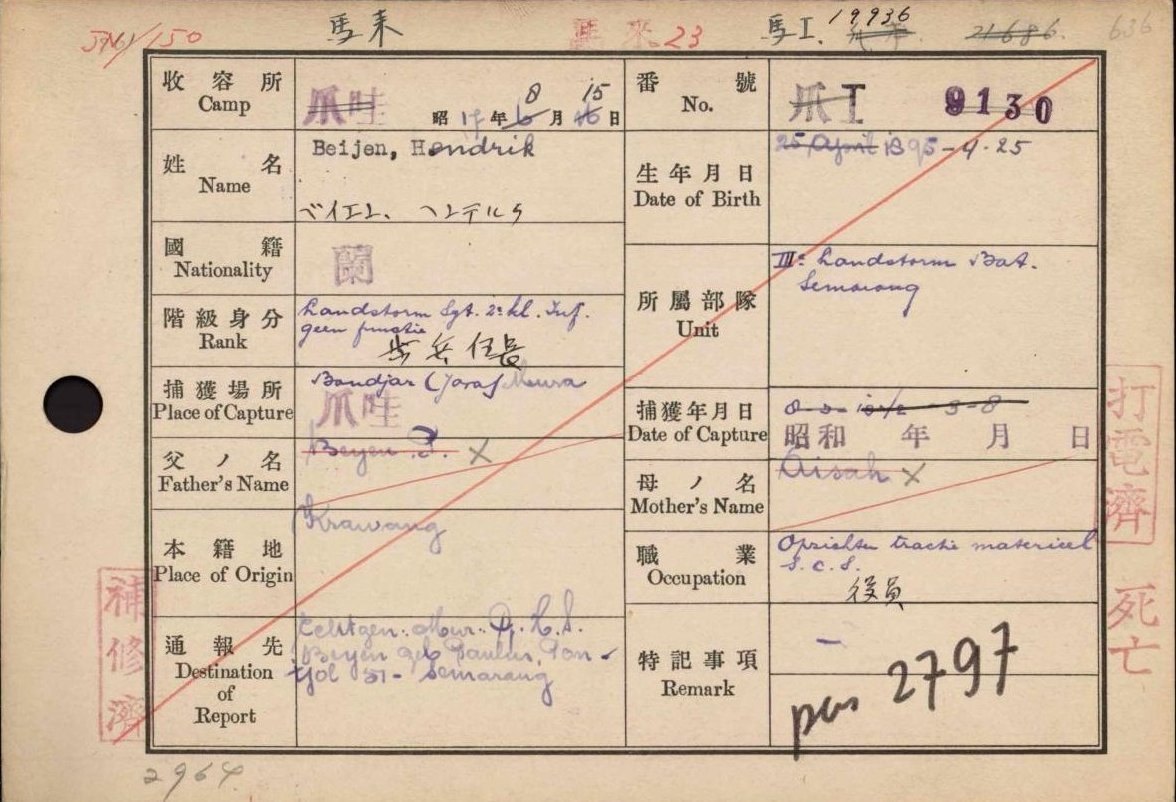 馬来
馬工. 19936
21686.
636
23
収容所
Camp
爪哇
昭17年 8月 15日
番號
No.
爪 I 9130
姓名
Name
Beijen, Hendrik
ベイエン、ヘンデルク
生年月日
Date of Birth
25 April 1895-4-25
國籍
Nationality
蘭
所屬部隊
Unit
III: Landstorm Bat.
Semarang
階級身分
Rank
Landstorm Sgt. 2e kl. Inf.
geen functie
歩兵伍長
捕獲場所
Place of Capture
Bandjar (Java)
爪哇
捕獲年月日
Date of Capture
昭和 年 月 日
父ノ名
Father's Name
Beyen ×
母ノ名
Mother's Name
Aisah ×
本籍地
Place of Origin
Krawang
職業
Occupation
Opzichter tractie materieel
S.C.S.
役員
通報先
Destination
of
Report
Echtgen. Mevr.
Beyen geb Paulus, Pon-
tjol 51- Semarang
特記事項
Remark
-
2797
打電濟
死亡
補修濟
2964